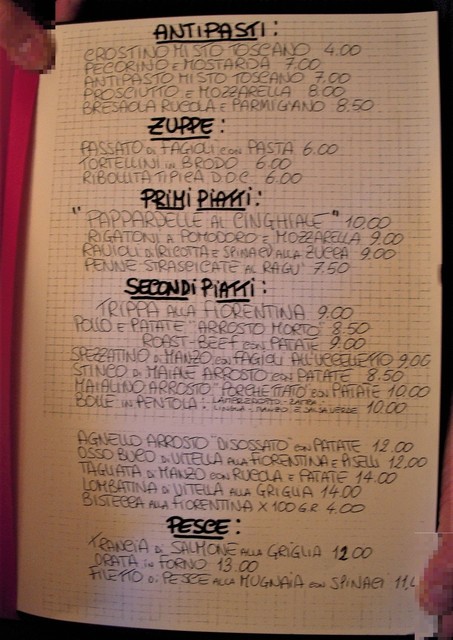 ANTIPASTI:
CROSTINO MISTO TOSCANO 4.00
PECORINO E MOSTARDA 7.00
ANTIPASTO MISTO TOSCANO 7.00
PROSCIUTTO E MOZZARELLA 8.00
BRESAOLA RUCOLA E PARMIGIANO 8.50
ZUPPE:
PASSATO DI FAGIOLI CON PASTA 6.00
TORTELLINI IN BRODO 6.00
RIBOLLITA TIPICA D.O.C. 6.00
PRIMI PIATTI:
"PAPPARDELLE AL CINGHIALE" 10.00
RIGATONI A POMODORO E MOZZARELLA 9.00
RAVIOLI DI RICOTTA E SPINACI ALLA ZUCCA 9.00
PENNE STRASCICATE AL RAGU' 7.50
SECONDI PIATTI:
TRIPPA ALLA FIORENTINA 9.00
POLLO E PATATE "ARROSTO MORTO" 8.50
ROAST-BEEF CON PATATE 9.00
SPEZZATINO DI MANZO CON FAGIOLI ALL'UCCELLETTO 9,00
STINCO DI MAIALE ARROSTO CON PATATE 8.50
MAIALINO ARROSTO "PORCHETTATO" CON PATATE 10.00
BOLLE IN PENTOLA: LAMPREDOTTO - ZAMPA -
LINGUA - MANZO E SALSA VERDE 10.00
AGNELLO ARROSTO "DISOSSATO" CON PATATE 12.00
OSSO BUCO DI VITELLA ALLA FIORENTINA E PISELLI 12.00
TAGLIATA DI MANZO CON RUCOLA E PATATE 14.00
LOMBATINA DI VITELLA ALLA GRIGLIA 14.00
BISTECCA ALLA FIORENTINA X 100 GR 4.00
PESCE:
TRANCIA DI SALMONE ALLA GRIGLIA 12.00
ORATA IN FORNO 13.00
FILETTO DI PESCE ALLA MUGNAIA CON SPINACI